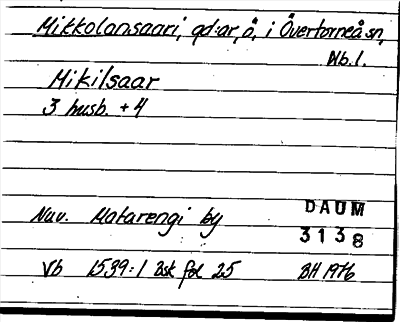 Mikkolansaari, gd:ar, ö, i Övertorneå sn,
Nb. l.
Mikilsaar
3 husb. + 4
Nuv. Matarengi by
DAUM
3138
Vb 1539:1 Bsk fol 25
BH 1976